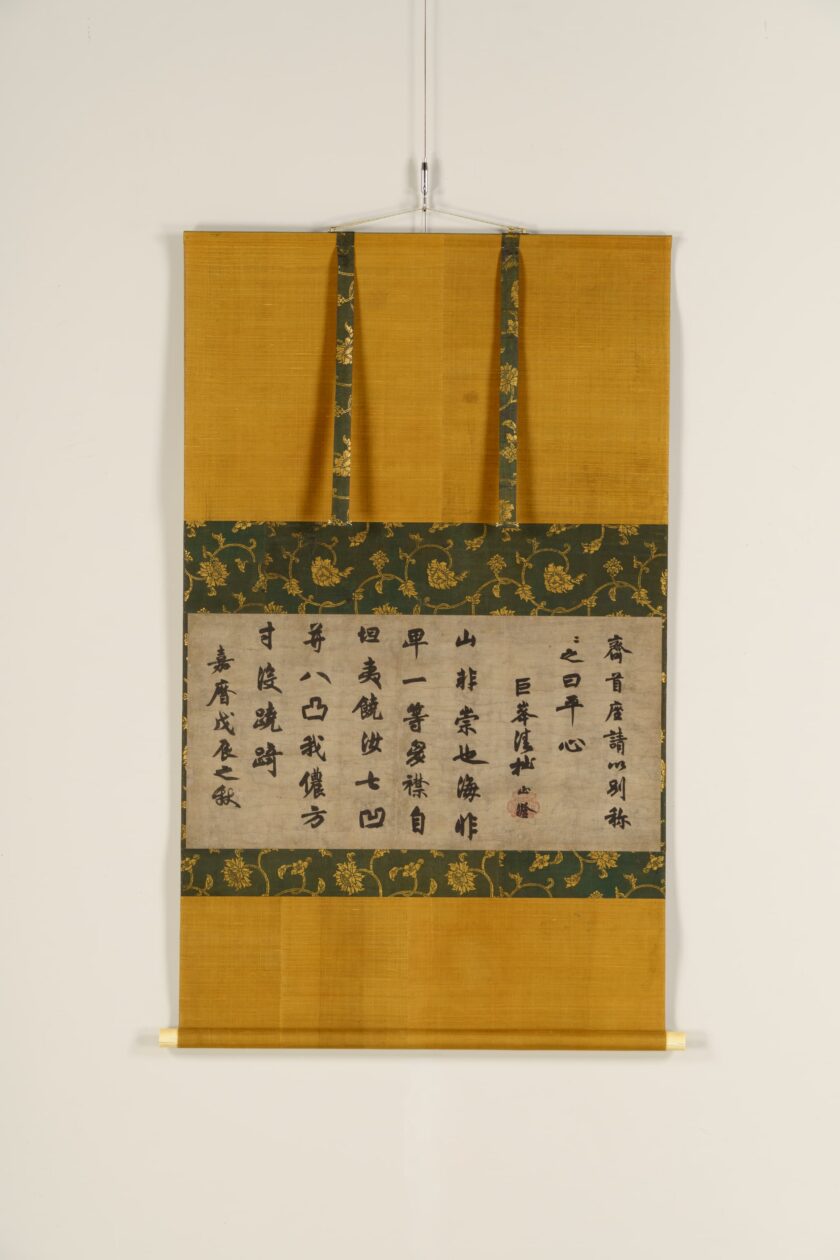 齊首座請以別称
〻之曰平心
巨峯清拙山澄
山非崇也海非
卑一等胷襟自
坦夷饒汝七凹
并八凸我儂方
寸没蹺踦
嘉曆戊辰之秋